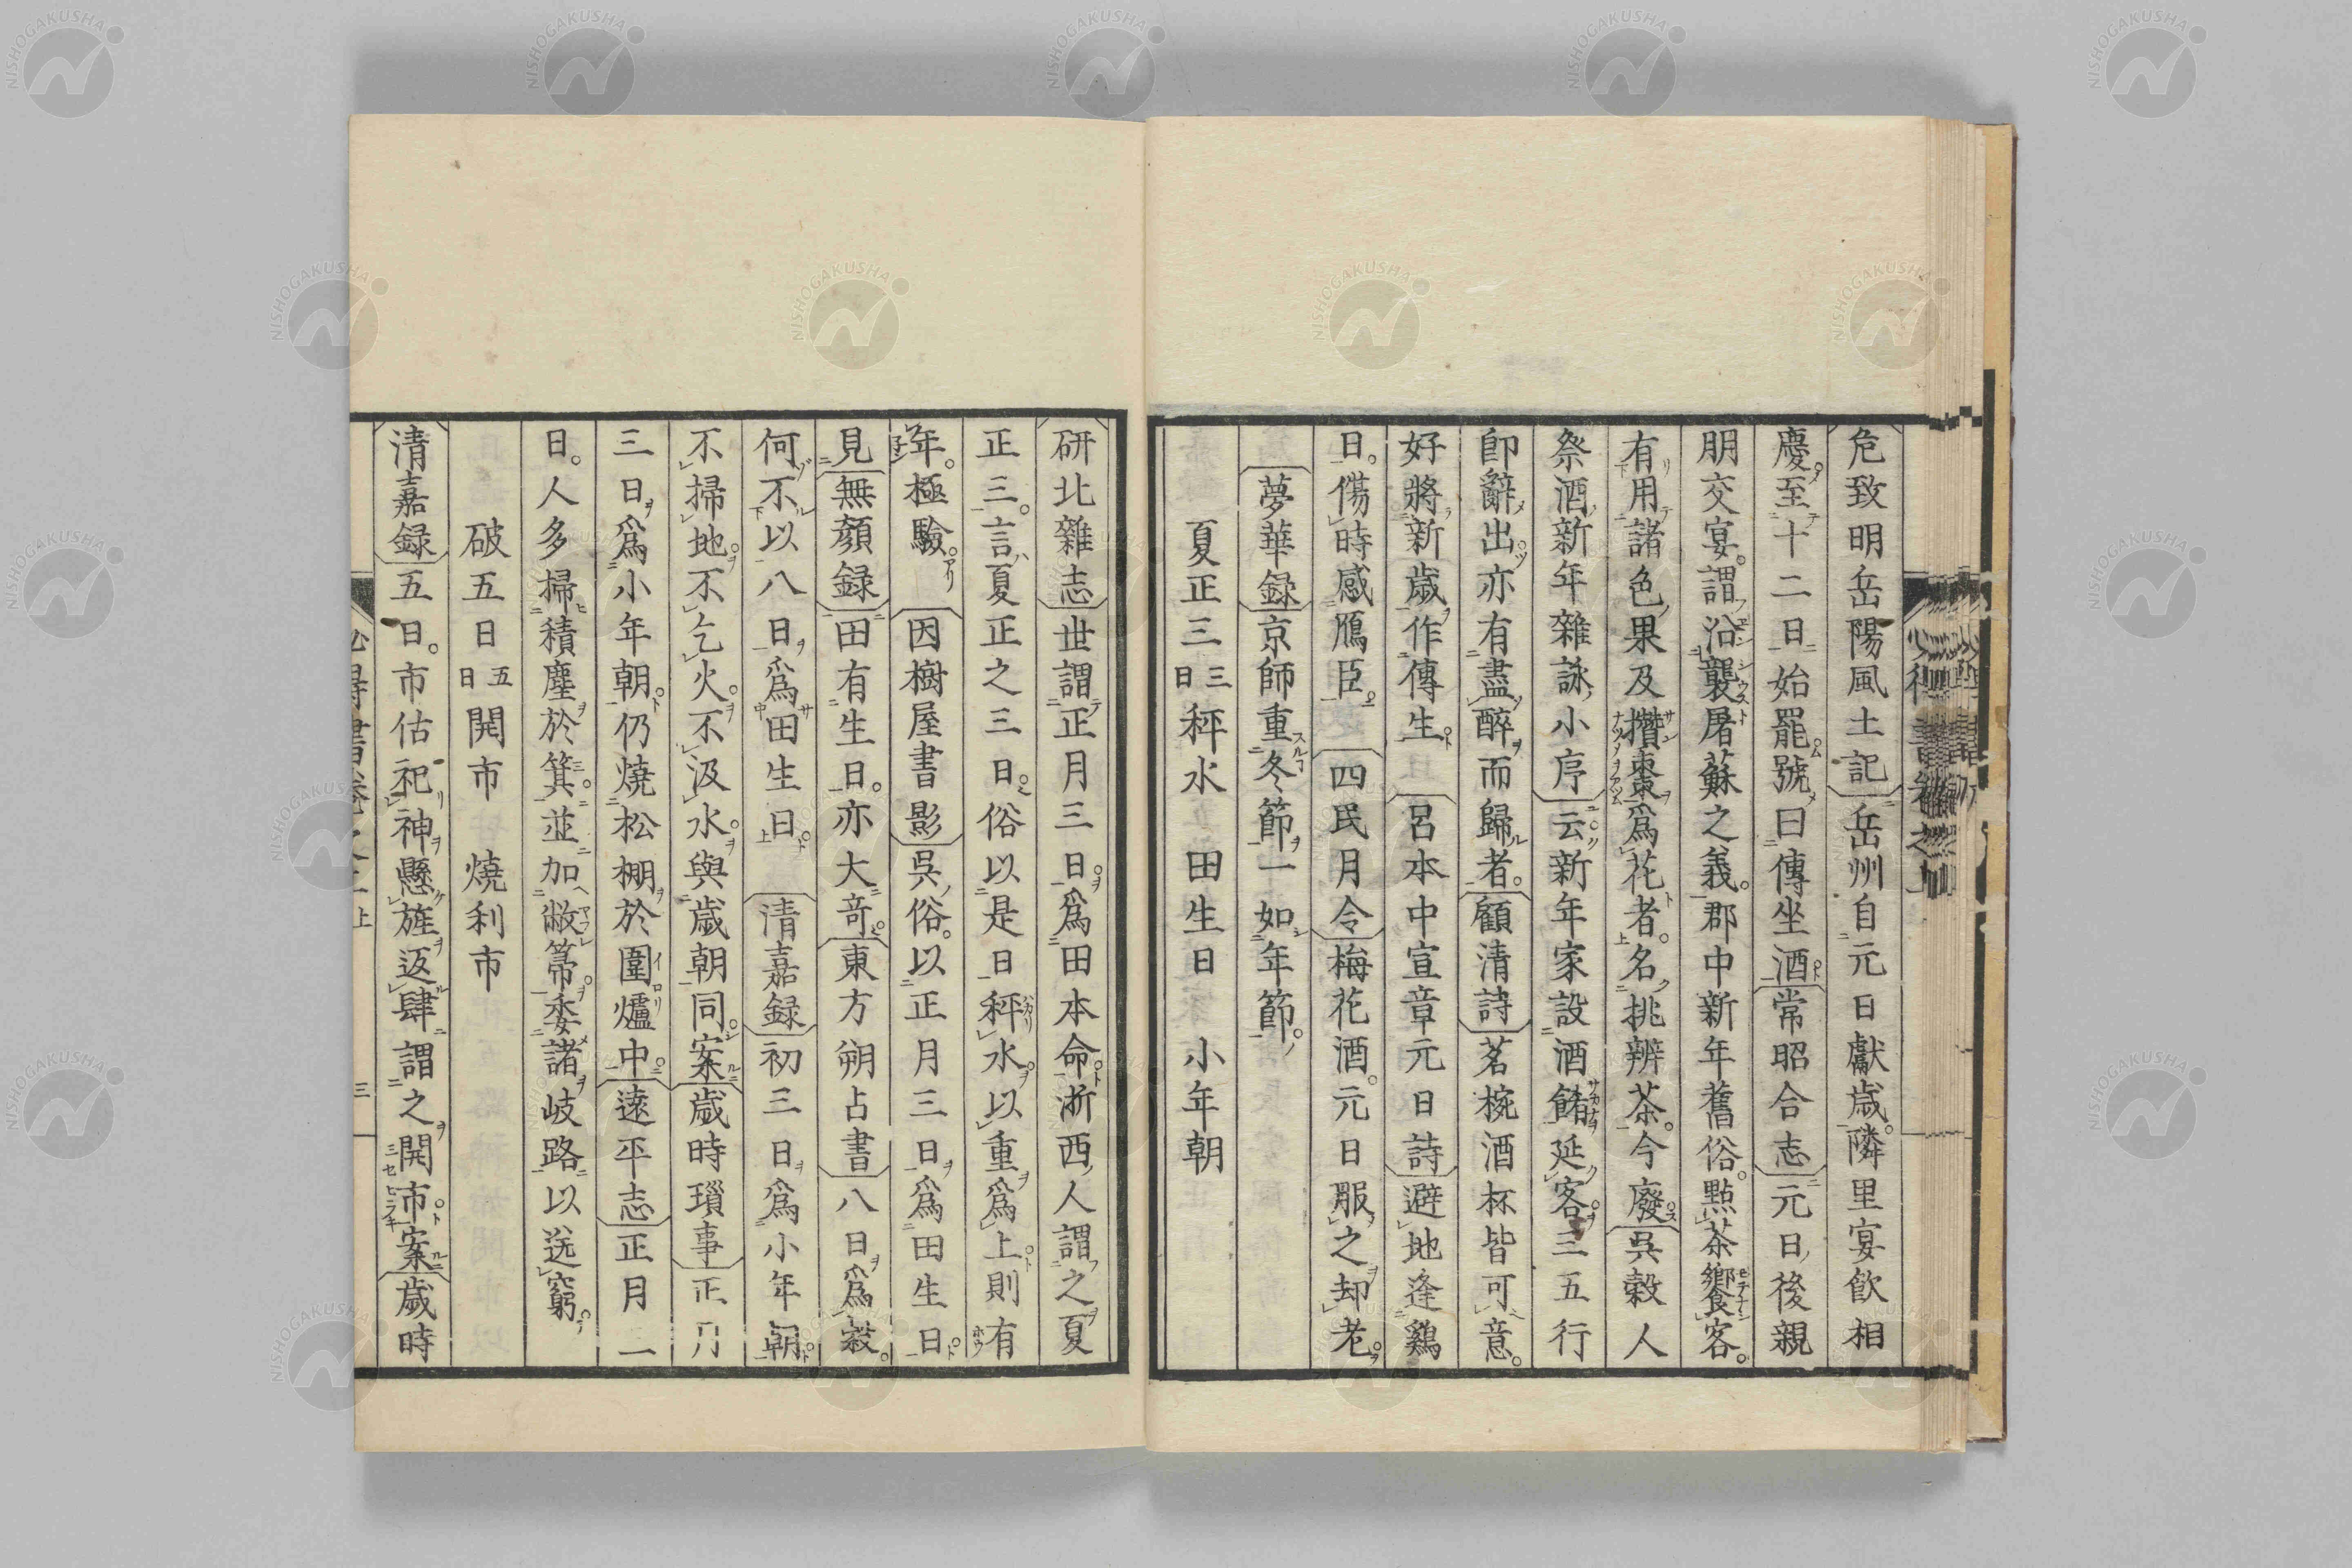 危致明岳陽風土記岳州自元日獻歳。隣里宴飲相
慶。至十二日始罷號曰傳坐酒常昭合志元日後親
朋交宴。謂沿襲屠蘇之義。郡中新年舊俗。點茶饗客。
有用諸色果及攢棗爲花者。名挑辨茶。今廢吳穀人
祭酒新年雜詠小序云新年家設酒餚延客。三五行
卽辭出。亦有盡醉而歸者。顧清詩茗椀酒杯皆可意。
好將新歳作傳生。呂本中宣章元日詩避地逢鷄
日。傷時感鴈臣。四民月令梅花酒。元日服之却老。
夢華録京師重冬節一如年節。
夏正三三日秤水 田生日 小年朝
研北雜志世謂正月三日。爲田本命浙西人謂之夏
正三。言夏正之三日。俗以是日秤水。以重爲上則有
年。極驗。因樹屋書影吳俗。以正月三日爲田生日。
見無顏録田有生日。亦大奇。東方朔占書八日爲穀。
何不以八日爲田生日。清嘉録初三日爲小年朝。
不掃地。不乞火。不汲水。與歳朝同。案歳時瑣事正月
三日爲小年朝。仍燒松棚於圍爐中。遠平志正月二
日。人多掃積塵於箕。並加敝箒。委諸岐路以送窮。
破五日五日開市 燒利市
清嘉録五日。市估祀神懸旌返肆謂之開市。案歳時
三